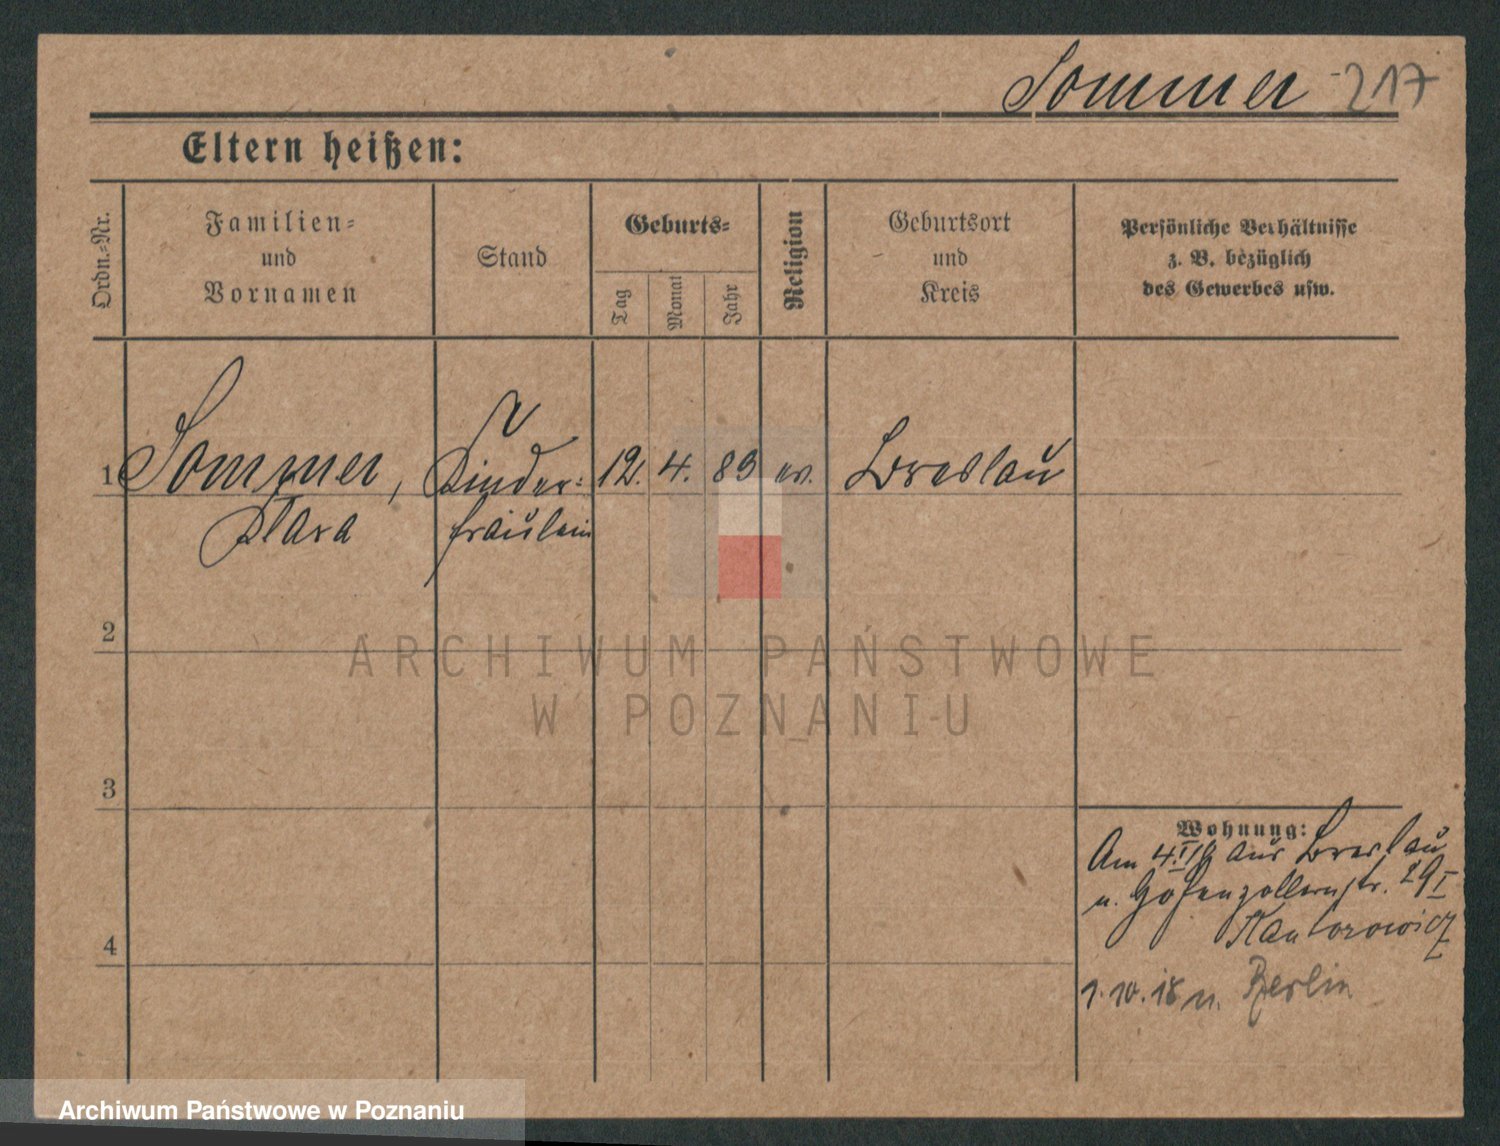 Sommer -217
Eltern heißen:
Ordn.-Nr.
Familien-
und
Vornamen
Stand
Geburts-
Tag
Monat
Jahr
Religion
Geburtsort
und
Kreis
Persönliche Verhältnisse
z. B. bezüglich
des Gewerbes usw.
1 Sommer, Kinder- 12. 4. 89 ev. Breslau
Klara fräulein
2
ARCHIWUM PAŃSTWOWE
W POZNANIU
3
Wohnung:
Am 4. aus Breslau
n. Hohenzollernstr. 29 I
Kantorowicz
1.10.18 n. Berlin
4
Archiwum Państwowe w Poznaniu